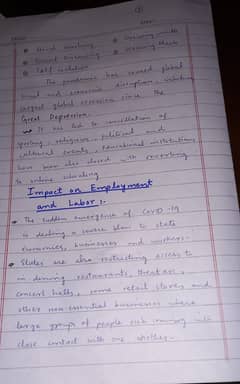 • Hand washing • Covering mouth
• Social Distancing • Wearing Masks
• Self isolation
The pandemic has caused global
social and economic disruption, including
largest global recession since the
Great Depression.
It has led to cancellation of
sporting, religious, political and
cultural events, educational institutions
have been also closed with
to online schooling
Impact on Employment
and Labor :-
• The sudden emergence of Covid-19
is dealing a severe blow to state
economies, businesses and workers.
• States are also restricting access to
in dining restaurants, theatres,
concert halls, some retail stores and
other non-essential businesses where
large groups of people
close contact with one another.